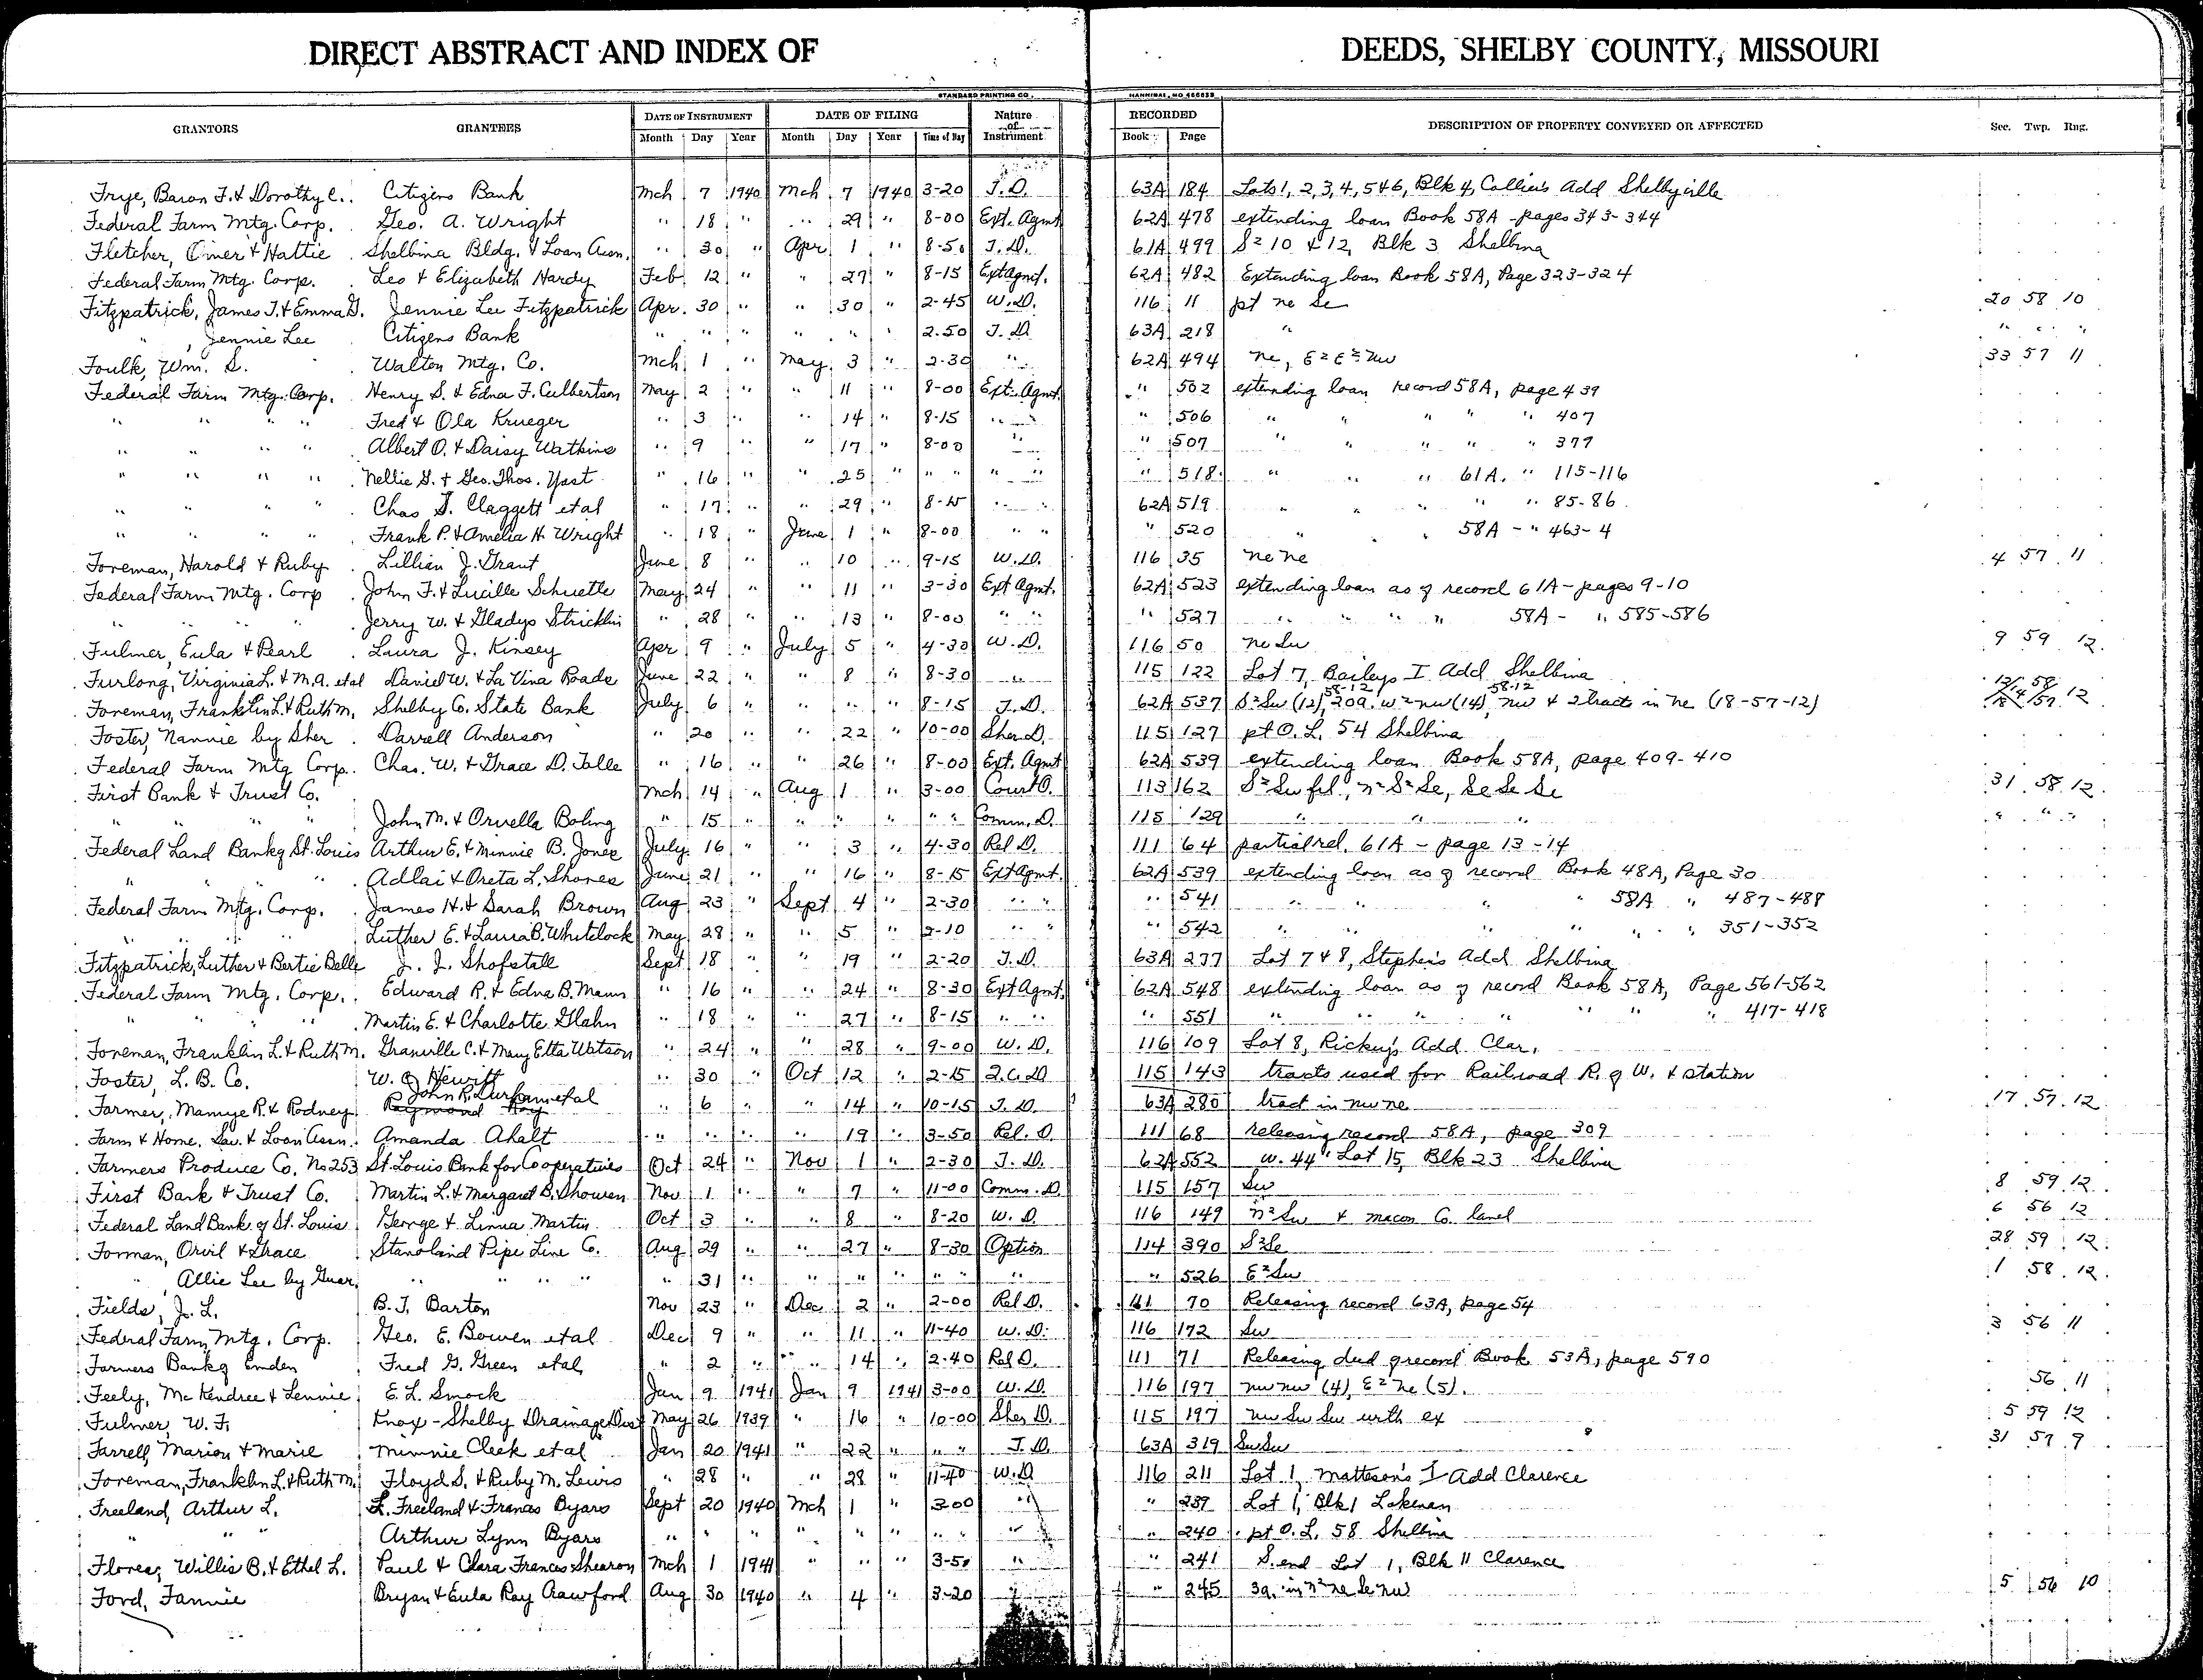 DIRECT ABSTRACT AND INDEX OF DEEDS, SHELBY COUNTY, MISSOURI
STANDARD PRINTING CO. HANNIBAL, MO.
GRANTORS GRANTEES DATE OF INSTRUMENT DATE OF FILING Nature of Instrument RECORDED DESCRIPTION OF PROPERTY CONVEYED OR AFFECTED Sec. Twp. Rng.
Month Day Year Month Day Year Time of Day Book Page
Frye, Baron F. & Dorothy C. Citizens Bank Mch 7 1940 Mch 7 1940 3-20 T.D. 63A 184 Lots 1, 2, 3, 4, 5 & 6, Blk 4, Collier's Add Shelbyville
Federal Farm Mtg. Corp. Geo. A. Wright " 18 " " 29 " 8-00 Ext. Agmt 62A 478 extending loan Book 58A - pages 343-344
Fletcher, Omer & Hattie Shelbina Bldg. & Loan Assn. " 30 " Apr 1 " 8-50 T.D. 61A 499 S2 10 & 12, Blk 3 Shelbina
Federal Farm Mtg. Corp. Leo & Elizabeth Hardy Feb 12 " " 27 " 8-15 Ext Agmt. 62A 482 Extending loan Book 58A, Page 323-324
Fitzpatrick, James T. & Emma G. Jennie Lee Fitzpatrick Apr. 30 " " 30 " 2-45 W.D. 116 11 pt ne se 20 58 10
" , Jennie Lee Citizens Bank " " " " " " 2.50 T.D. 63A 218 " " " "
Foulk, Wm. S. Walton Mtg. Co. Mch 1 " May 3 " 2-30 " 62A 494 ne, E2 E2 nw 33 57 11
Federal Farm Mtg. Corp. Henry S. & Edna F. Culbertson May 2 " " 11 " 8-00 Ext. Agmt. " 502 extending loan record 58A, page 439
" " " " Fred & Ola Krueger " 3 " " 14 " 8-15 " " " 506 " " " " " 407
" " " " Albert O. & Daisy Watkins " 9 " " 17 " 8-00 " " 507 " " " " " 377
" " " " Nellie G. & Geo. Thos. Yost " 16 " " 25 " " " " " " 518 " " " 61A. " 115-116
" " " " Chas S. Claggett et al " 17 " " 29 " 8-15 " " 62A 519 " " " " " 85-86
" " " " Frank P. & Amelia H. Wright " 18 " June 1 " 8-00 " " " 520 " " 58A - " 463-4
Foreman, Harold & Ruby Lillian J. Grant June 8 " " 10 " 9-15 W.D. 116 35 ne ne 4 57 11
Federal Farm Mtg. Corp John F. & Lucille Schuette May 24 " " 11 " 3-30 Ext Agmt. 62A 523 extending loan as of record 61A - pages 9-10
" " " " Jerry W. & Gladys Stricklin " 28 " " 13 " 8-00 " " " 527 " " " " 58A - " 585-586
Fulmer, Eula & Pearl Laura J. Kinsey Apr 9 " July 5 " 4-30 W.D. 116 50 ne sw 9 59 12
Furlong, Virginia L. & M.A. et al Daniel W. & La Vina Boade June 22 " " 8 " 8-30 " 115 122 Lot 7, Baileys I Add Shelbina
Foreman, Franklin L. & Ruth M. Shelby Co. State Bank July 6 " " " " 8-15 T.D. 62A 537 S2 Sw (12), 58-12 20a. W2 nw (14), 58-12 nw & 2 tracts in ne (18-57-12)
Foster, Nannie by Sher Darrell Anderson " 20 " " 22 " 10-00 Sher D. 115 127 pt O. L. 54 Shelbina
Federal Farm Mtg Corp. Chas. W. & Grace D. Talle " 16 " " 26 " 8-00 Ext. Agmt 62A 539 extending loan Book 58A, page 409-410
First Bank & Trust Co. Mch 14 " Aug 1 " 3-00 Court O. 113 162 S2 Sw frl, n2 S2 Se, Se Se Se 31 58 12
" " " " John M. & Orvella Boling " 15 " " " " " " Comm. D. 115 129 " " " " " "
Federal Land Bank of St. Louis Arthur E. & Minnie B. Jones July 16 " " 3 " 4-30 Rel D. 111 64 partial rel. 61A - page 13-14
" " " Adlai & Oreta L. Shores June 21 " " 16 " 8-15 Ext Agmt. 62A 539 extending loan as of record Book 48A, Page 30
Federal Farm Mtg. Corp. James H. & Sarah Brown Aug 23 " Sept 4 " 2-30 " " " 541 " " " " 58A " 487-488
" " " " Luther E. & Laura B. Whitelock May 28 " " 5 " 2-10 " " " 542 " " " " " " 351-352
Fitzpatrick, Luther & Bertie Belle J. J. Shofstall Sept 18 " " 19 " 2-20 T.D. 63A 277 Lot 7 & 8, Stephen's Add Shelbina
Federal Farm Mtg. Corp. Edward R. & Edna B. Mann " 16 " " 24 " 8-30 Ext Agmt. 62A 548 extending loan as of record Book 58A, Page 561-562
" " " " Martin E. & Charlotte Glahn " 18 " " 27 " 8-15 " " " 551 " " " " " " " 417-418
Foreman, Franklin L. & Ruth M. Granville C. & Mary Etta Watson " 24 " " 28 " 9-00 W.D. 116 109 Lot 8, Rickey's Add. Clar.
Foster, L. B. Co. W. O. Hewitt " 30 " Oct 12 " 2-15 Q.C.D 115 143 tracts used for Railroad R. of W. & station
Farmer, Mamye R. & Rodney John R. Durham et al " 6 " " 14 " 10-15 T.D. 63A 280 tract in nw ne 17 57 12
Farm & Home Sav. & Loan Assn. Amanda Ahalt " " " " 19 " 3-50 Rel. D. 111 68 releasing record 58A, page 309
Farmers Produce Co. No 253 St. Louis Bank for Cooperatives Oct 24 " Nov 1 " 2-30 T.D. 62A 552 W. 44" Lot 15, Blk 23 Shelbina
First Bank & Trust Co. Martin L. & Margaret B. Showen Nov 1 " " 7 " 11-00 Comm. D. 115 157 Sw 8 59 12
Federal Land Bank of St. Louis George & Linna Martin Oct 3 " " 8 " 8-20 W.D. 116 149 n2 Sw & macon Co. land 6 56 12
Forman, Orvil & Grace Stanoland Pipe Line Co. Aug 29 " " 27 " 8-30 Option 114 390 S2 Se 28 59 12
" Allie Lee by Guar. " " " " " 31 " " " " " " " " 526 E2 Sw 1 58 12
Fields, J. L. B. T. Barton Nov 23 " Dec 2 " 2-00 Rel D. 111 70 Releasing record 63A, page 54
Federal Farm Mtg. Corp. Geo. E. Bowen et al Dec 9 " " 11 " 11-40 W.D. 116 172 Sw 3 56 11
Farmers Bank of Emden Fred G. Green et al " 2 " " 14 " 2-40 Rel D. 111 71 Releasing deed of record Book 53A, page 590
Feely, McKendree & Lennie E. L. Smock Jan 9 1941 Jan 9 1941 3-00 W.D. 116 197 nw nw (4), E2 ne (5). 56 11
Fulmer, W. F. Knox-Shelby Drainage Dist May 26 1939 " 16 " 10-00 Sher D. 115 197 nw Sw Sw with ex 5 59 12
Farrell, Marion & Marie Minnie Cleek et al Jan 20 1941 " 22 " " " T.D. 63A 319 Sw Sw 31 57 9
Foreman, Franklin L. & Ruth M. Floyd S. & Ruby M. Lewis " 28 " " 28 " 11-40 W.D 116 211 Lot 1, Matteson's I Add Clarence
Freeland, Arthur L. L. Freeland & Frances Byars Sept 20 1940 Mch 1 " 3-00 " " 239 Lot 1, Blk 1 Lakenan
" " " Arthur Lynn Byars " " " " " " " " " " 240 pt O. L. 58 Shelbina
Flores, Willis B. & Ethel L. Paul & Clara Frances Shearon Mch 1 1941 " " " 3-50 " " 241 S. end Lot 1, Blk 11 Clarence
Ford, Fannie Bryan & Eula Ray Crawford Aug 30 1940 " 4 " 3-20 " " 245 3a. in n2 ne Se nw 5 56 10